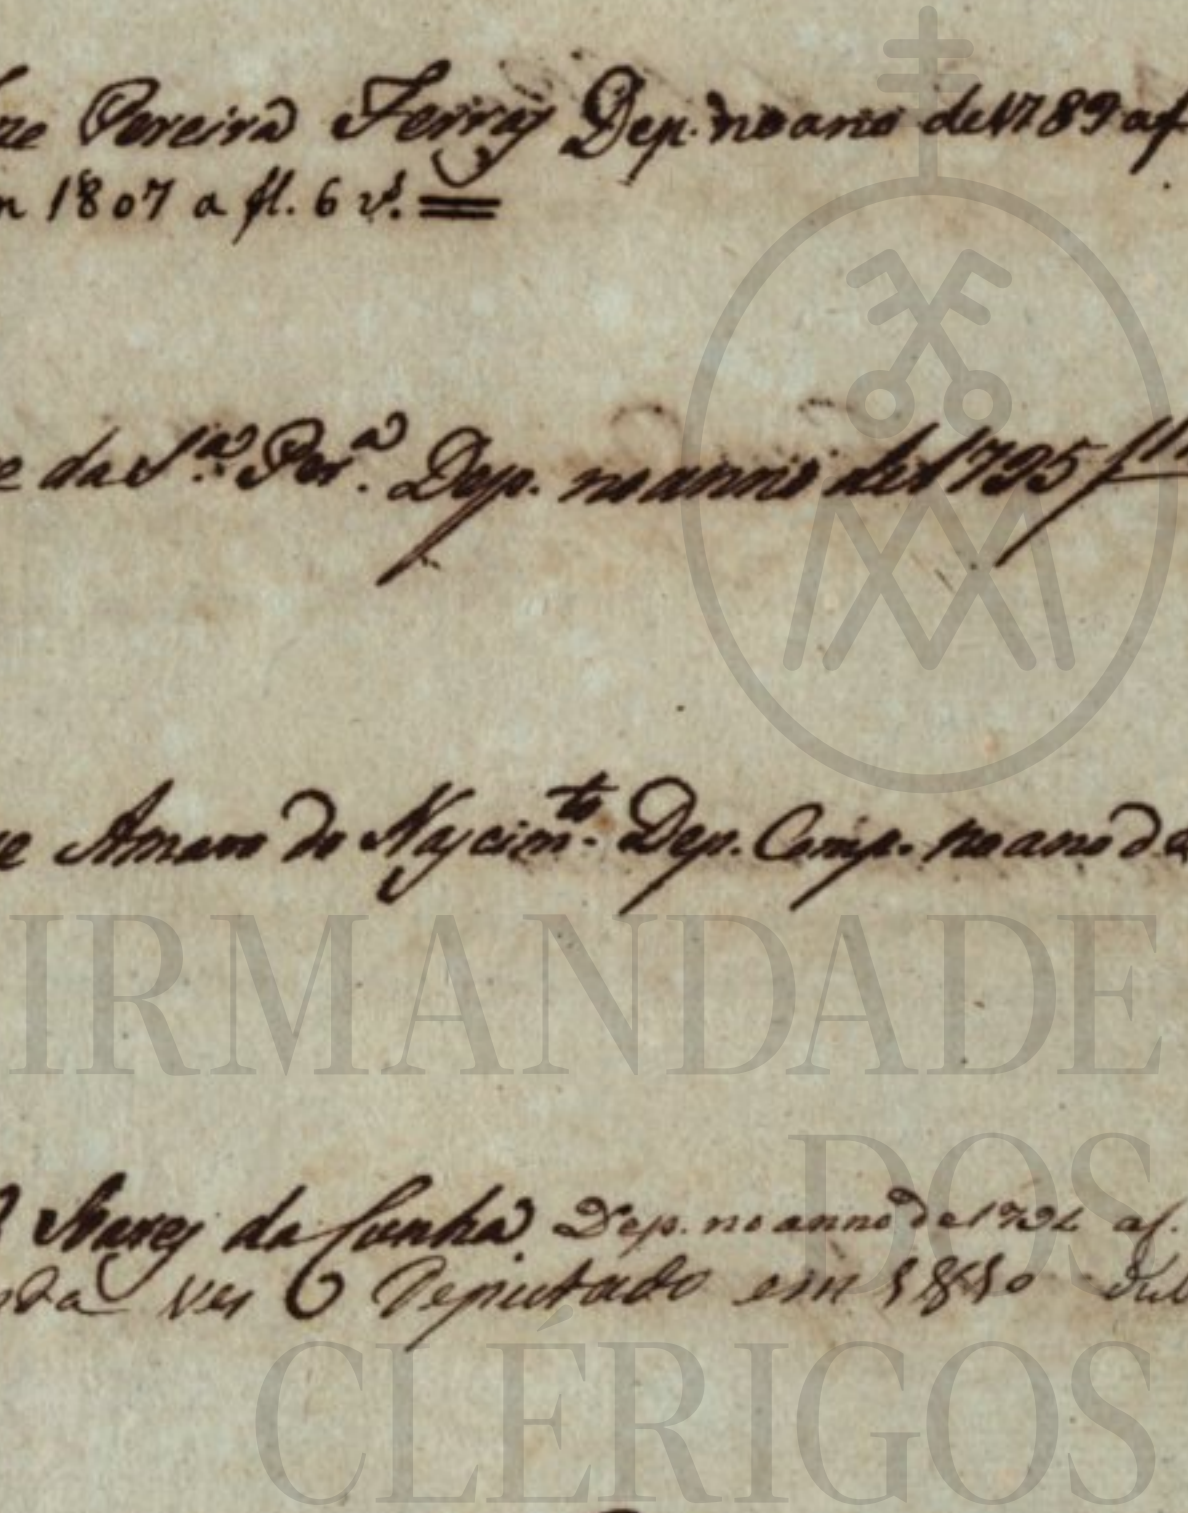 Pereira Ferrȷ Dep. no ano de 1789 a f
1807 a fl. 6 v.
e da S.ª Per.ª Dep. no anno de 1795
e Amaro do Nascim.to Dep. Comp. no ano de
Soares da Cunha Dep. no anno de 1792 a f.
da ves Deputado em 1810
IRMANDADE
DOS
CLÉRIGOS